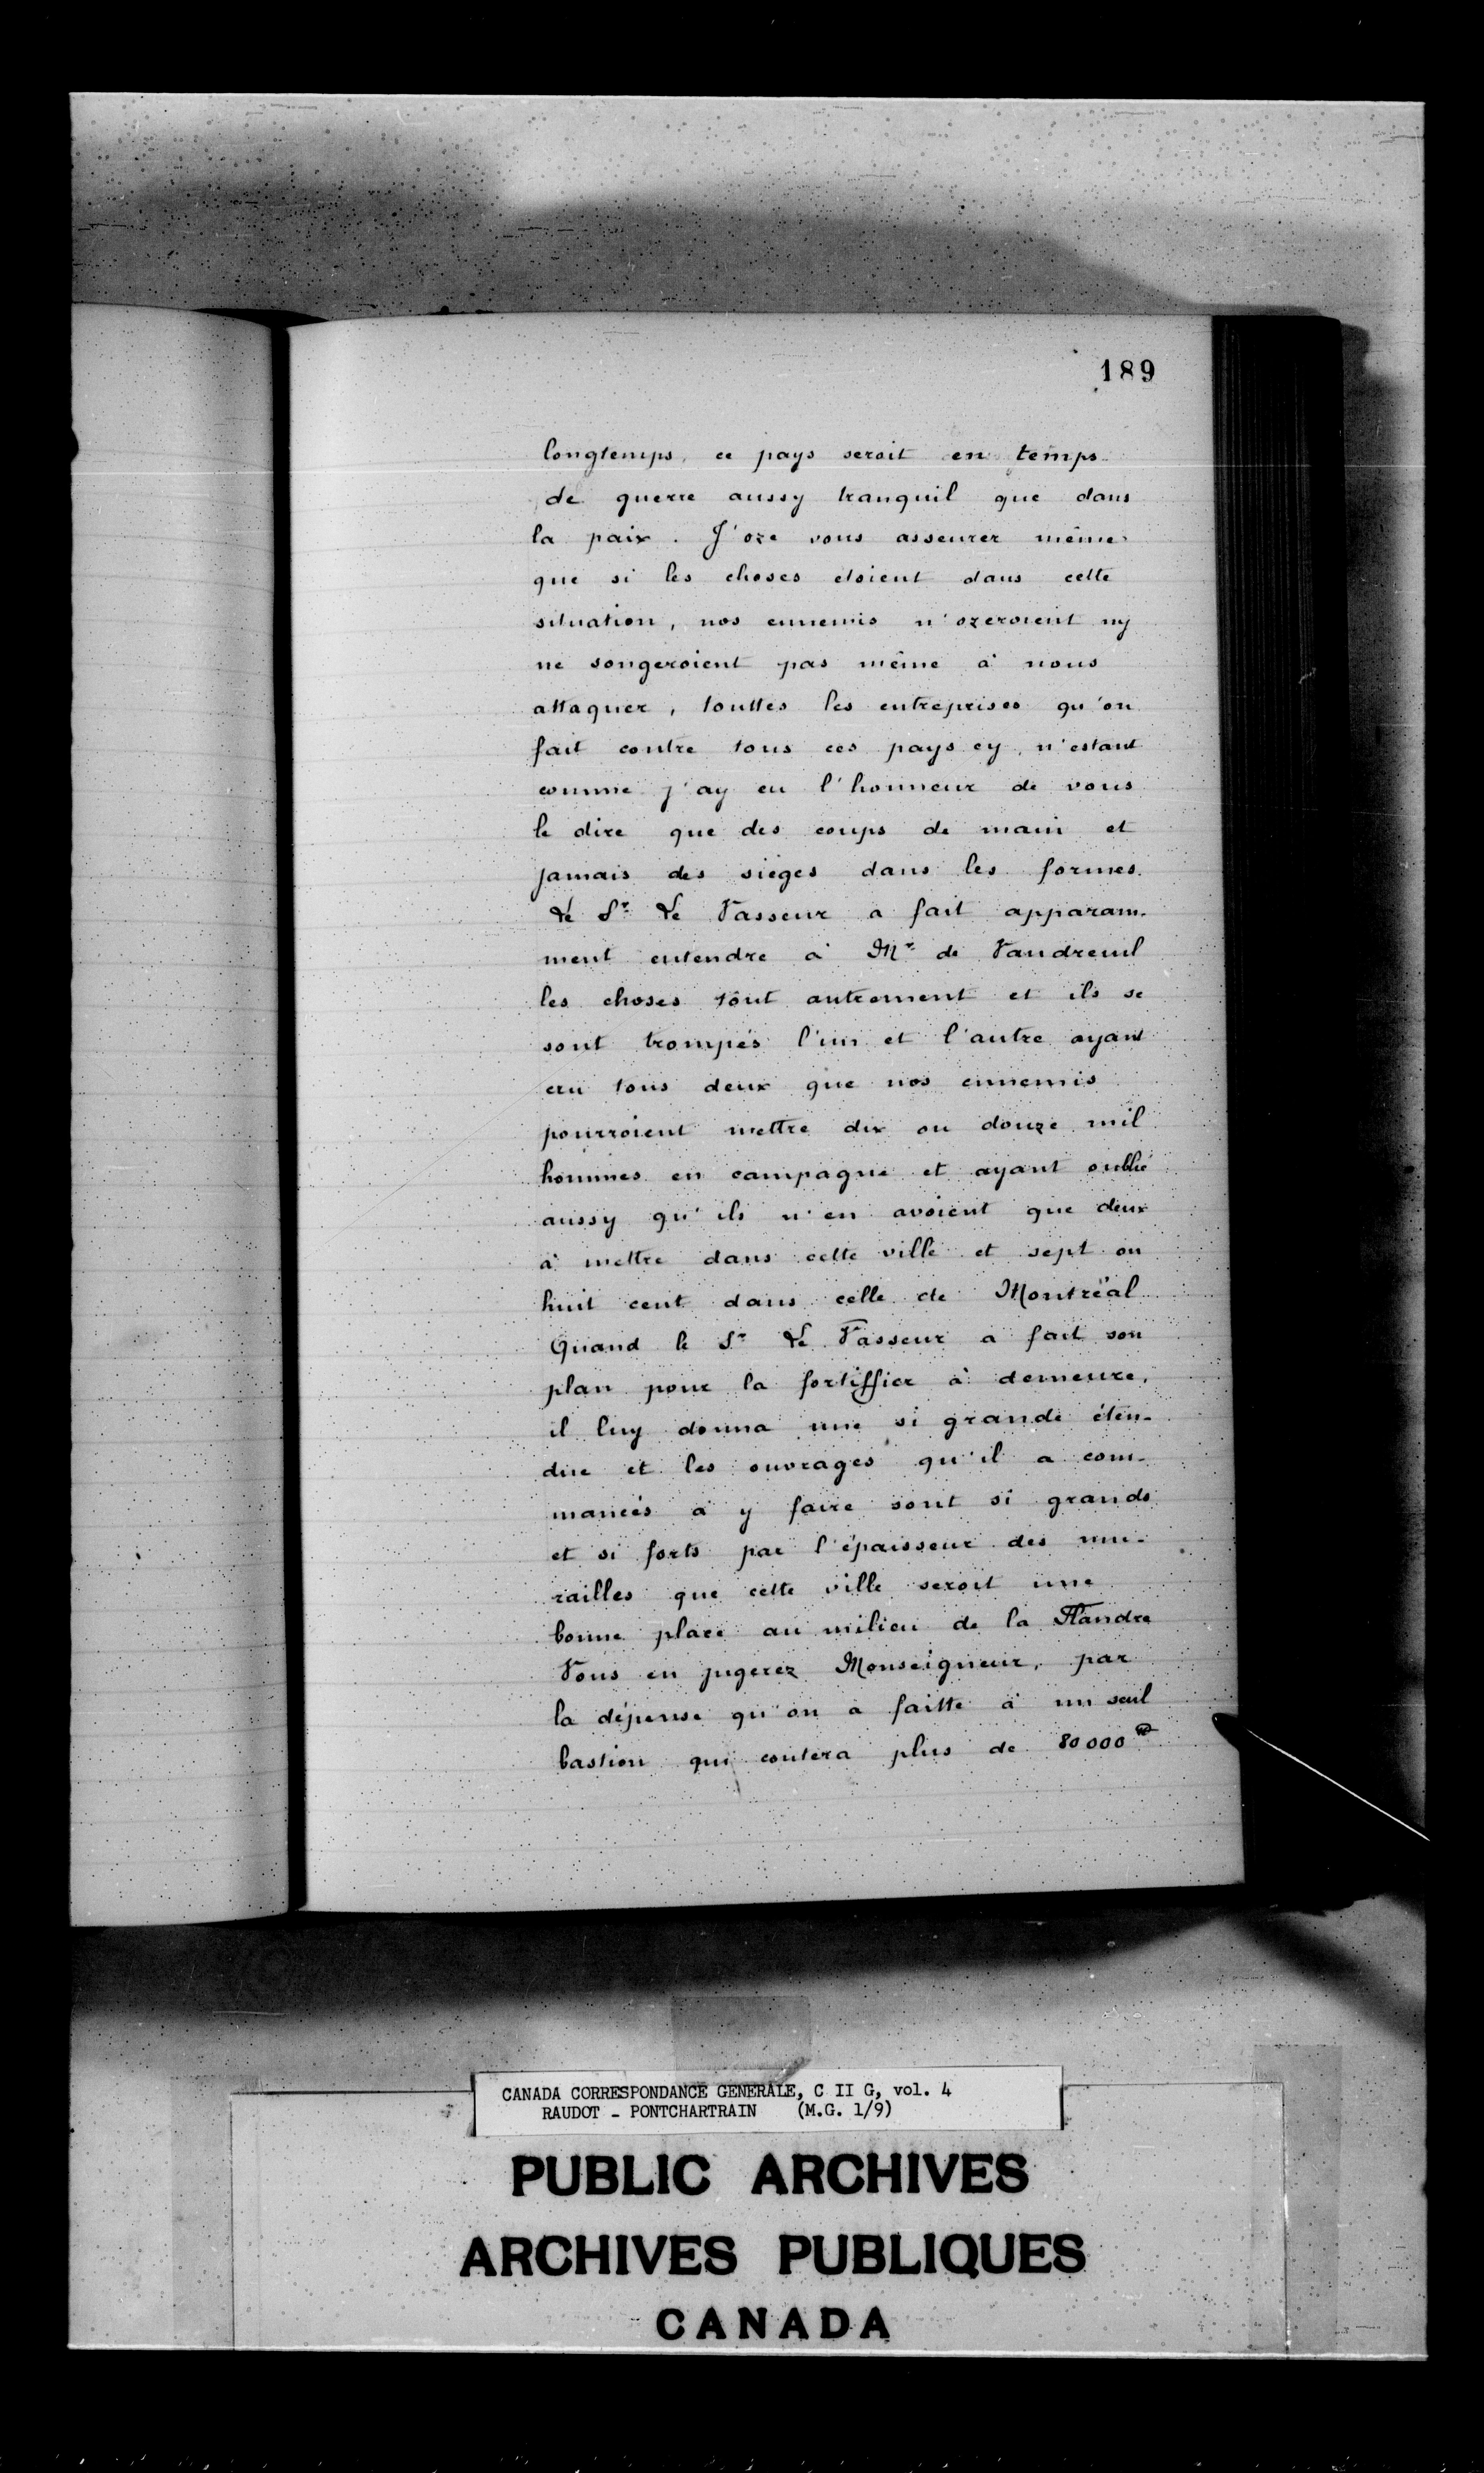 189
longtemps, ce pays seroit en temps
de guerre aussy tranquil que dans
la paix. J'oze vous asseurer même
que si les choses etoient dans cette
situation, nos ennemis n'ozeroient ny
ne songeroient pas même à nous
attaquer, touttes les entreprises qu'on
fait contre tous ces pays cy, n'estant
comme j'ay eu l'honneur de vous
le dire que des coups de main et
jamais des sièges dans les formes.
Le Sr Le Vasseur a fait apparam-
ment entendre à Mr de Vaudreuil
les choses tout autrement et ils se
sont trompés l'un et l'autre ayant
cru tous deux que nos ennemis
pourroient mettre dix ou douze mil
hommes en campagne et ayant oublié
aussy qu'ils n'en avoient que deux
à mettre dans cette ville et sept ou
huit cent dans celle de Montréal
Quand le Sr Le Vasseur a fait son
plan pour la fortiffier à demeure,
il luy donna une si grande éten-
due et les ouvrages qu'il a com-
mancés à y faire sont si grands
et si forts par l'épaisseur des mu-
railles que cette ville seroit une
bonne place au milieu de la Flandre
Vous en jugerez Monseigneur, par
la dépense qu'on a faitte à un seul
bastion qui coutera plus de 80000 ₶
CANADA CORRESPONDANCE GENERALE, C II G, vol. 4
RAUDOT - PONTCHARTRAIN (M.G. 1/9)
PUBLIC ARCHIVES
ARCHIVES PUBLIQUES
CANADA